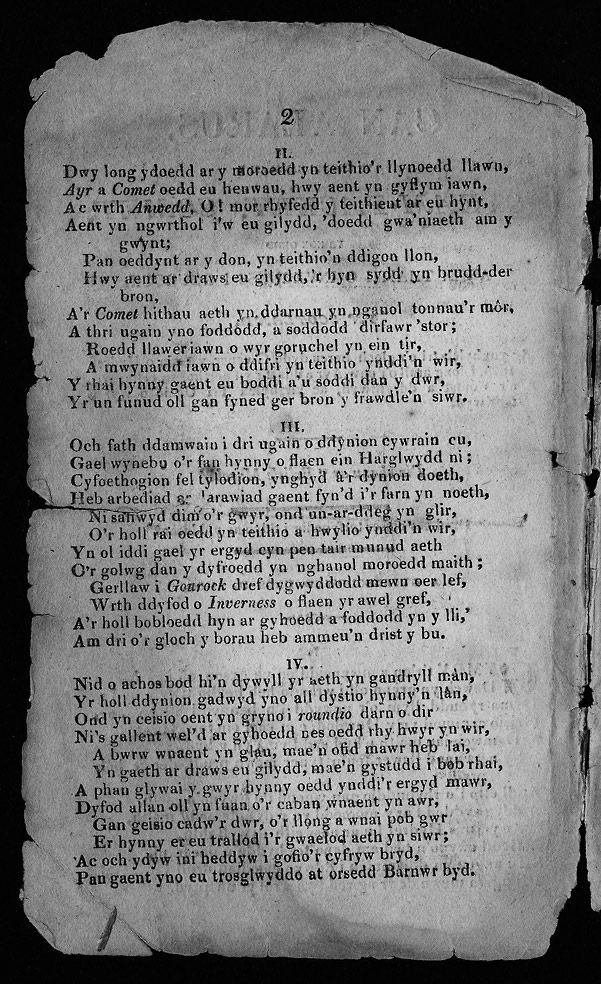 2
II.
Dwy long ydoedd ar y moroedd yn teithio'r llynoedd llawn,
Ayr a Comet oedd eu henwau, hwy aent yn gyflym iawn,
Ac wrth Anwedd, O! mor rhyfedd y teithient ar eu hynt,
Aent yn ngwrthol i'w eu gilydd, 'doedd gwa'niaeth am y
gwynt;
Pan oeddynt ar y don, yn teithio'n ddigon llon,
Hwy aent ar draws eu gilydd, 'r hyn sydd yn brudd-der
bron,
A'r Comet hithau aeth yn ddarnau yn nganol tonnau'r môr,
A thri ugain yno foddodd, a soddodd dirfawr 'stor;
Roedd llawer iawn o wyr goruchel yn ein tir,
A mwynaidd iawn o ddifri yn teithio ynddi'n wir,
Y rhai hynny gaent eu boddi a'u soddi dan y dwr,
Yr un funud oll gan fyned ger bron y frawdle'n siwr.
III.
Och fath ddamwain i dri ugain o ddynion cywrain cu,
Gael wynebu o'r fan hynny o flaen ein Harglwydd ni;
Cyfoethogion fel tylodion, ynghyd â'r dynion doeth,
Heb arbediad ar 'arawiad gaent fyn'd i'r farn yn noeth,
Ni safiwyd dim o'r gwyr, ond un-ar-ddeg yn glir,
O'r holl rai oedd yn teithio a hwylio ynddi'n wir,
Yn ol iddi gael yr ergyd cyn pen tair munud aeth
O'r golwg dan y dyfroedd yn nghanol moroedd maith;
Gerllaw i Gourock dref dygwyddodd mewn oer lef,
Wrth ddyfod o Inverness o flaen yr awel gref,
A'r holl bobloedd hyn ar gyhoedd a foddodd yn y lli,
Am dri o'r gloch y borau heb ammeu'n drist y bu.
IV.
Nid o achos bod hi'n dywyll yr aeth yn gandryll mân,
Yr holl ddynion gadwyd yno all dystio hynny'n lân,
Ond yn ceisio oent yn gryno i roundio darn o dir
Ni's gallent wel'd ar gyhoedd nes oedd rhy hwyr yn wir,
A bwrw wnaent yn glau, mae'n ofid mawr heb lai,
Yn gaeth ar draws eu gilydd, mae'n gystudd i bob rhai,
A phan glywai y gwyr hynny oedd ynddi'r ergyd mawr,
Dyfod allan oll yn fuan o'r caban wnaent yn awr,
Gan geisio cadw'r dwr, o'r llong a wnai pob gwr
Er hynny er eu trallod i'r gwaelod aeth yn siwr;
Ac och ydyw ini heddyw i gofio'r cyfryw bryd,
Pan gaent yno eu trosglwyddo at orsedd Barnwr byd.